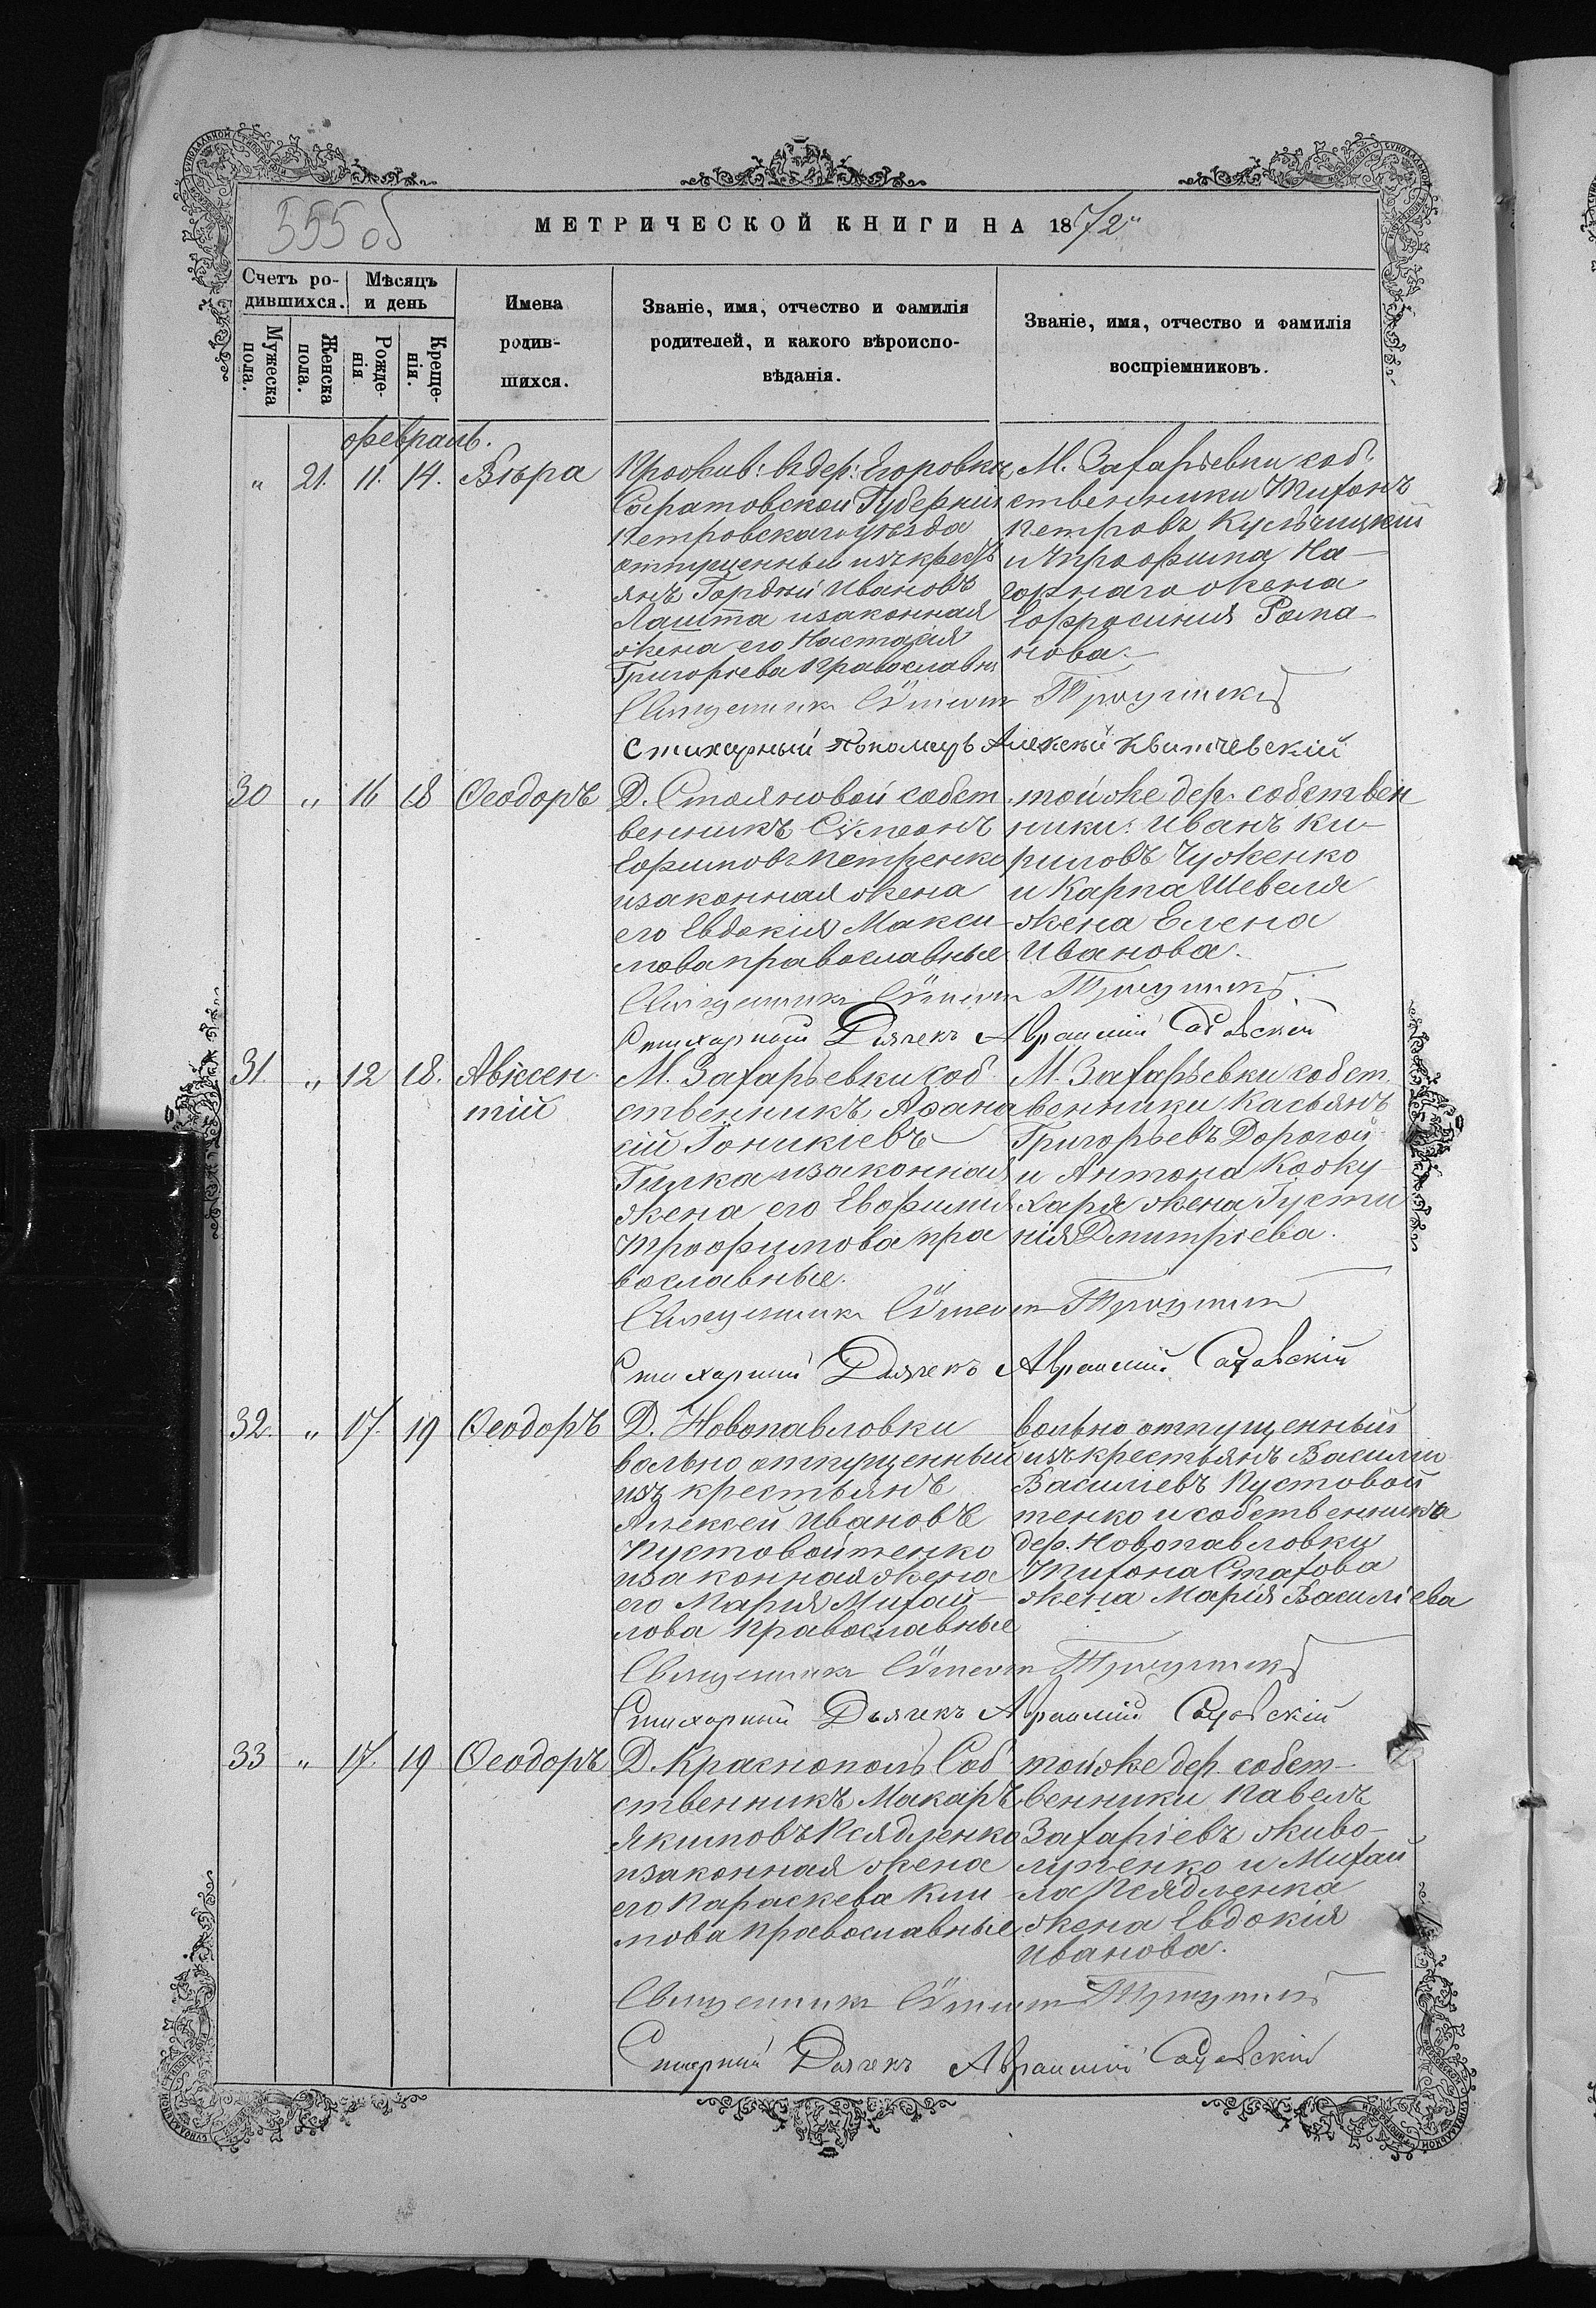 555 об
МЕТРИЧЕСКОЙ КНИГИ НА 1872
Счетъ ро-
дившихся.
Мѣсяцъ
и день
Имена
родив-
шихся.
Званіе, имя, отчество и фамилія
родителей, и какого вѣроиспо-
вѣданія.
Званіе, имя, отчество и фамилія
воспріемниковъ.
Мужеска
пола.
Женска
пола.
Рожде-
нія
Креще-
нія.
февраль.
" 21. 11. 14. Вѣра
Прожив: въ дер: Егоровкѣ
Саратовской Губерніи
Петровскаго уѣзда
отпущенный изъ кресть
янъ Гордѣй Ивановъ
Лашта и законная
жена его Настасія
Григорьева Православн
М. Захарьевки соб
ственники Тихонъ
Петровъ
и Трофима На-
горнаго жена
Ефросинія Рома-
нова.
Священникъ Сѵмеон
Стихарный Пономарь Алексѣй Квитчевскій
30 " 16 18 Ѳеодоръ
Д. Стояновой собст
венникъ Сѵмеонъ
Ефимовъ Петренко
и законная жена
его Евдокія Макси-
мова православные
той же дер. собствен
ники: Иванъ Ки-
риловъ Чуженко
и Карпа Шевеля
жена Елена
Иванова.
Священникъ Сѵмеон
Стихарный Дьячекъ Авраамій Садовскій
31. " 12 18. Авксен
тій
М. Захарьевки соб
ственникъ Аѳана
сій Іоникіевъ
и законная
жена его Евфимія
Трофимова пра
вославные.
М. Захарьевки собст
венники Касьянъ
Григорьевъ Дорогой
и Антона Кожу
харя жена Густи
нія Дмитріева.
Священникъ Сѵмеон
Стихарный Дьячекъ Авраамій Садовскій
32. " 17. 19 Ѳеодоръ
Д. Новопавловки
вольно отпущенный
изъ крестьянъ
Алексей Ивановъ
Пустовойтенко
и законная жена
его Марія Михай-
лова Православные
вольно отпущенный
изъ крестьянъ Василій
Василіевъ Пустовой
тенко и собственника
дер. Новопавловки
Тихона Стахова
жена Марія Василіева
Священникъ Сѵмеон
Стихарный Дьячекъ Авраамій Садовскій
33 " 17. 19 Ѳеодоръ
Д. Краснополь Соб
ственникъ Макаръ
Якимовъ Псядленко
и законная жена
его Параскева Кли
мова Православные
той же дер. собст-
венники Павелъ
Захаріевъ Живо-
лупенко и Михаи
ла Псядленка
жена Евдокія
Иванова.
Священникъ Сѵмеон
Дьячекъ Авраамій Садовскій